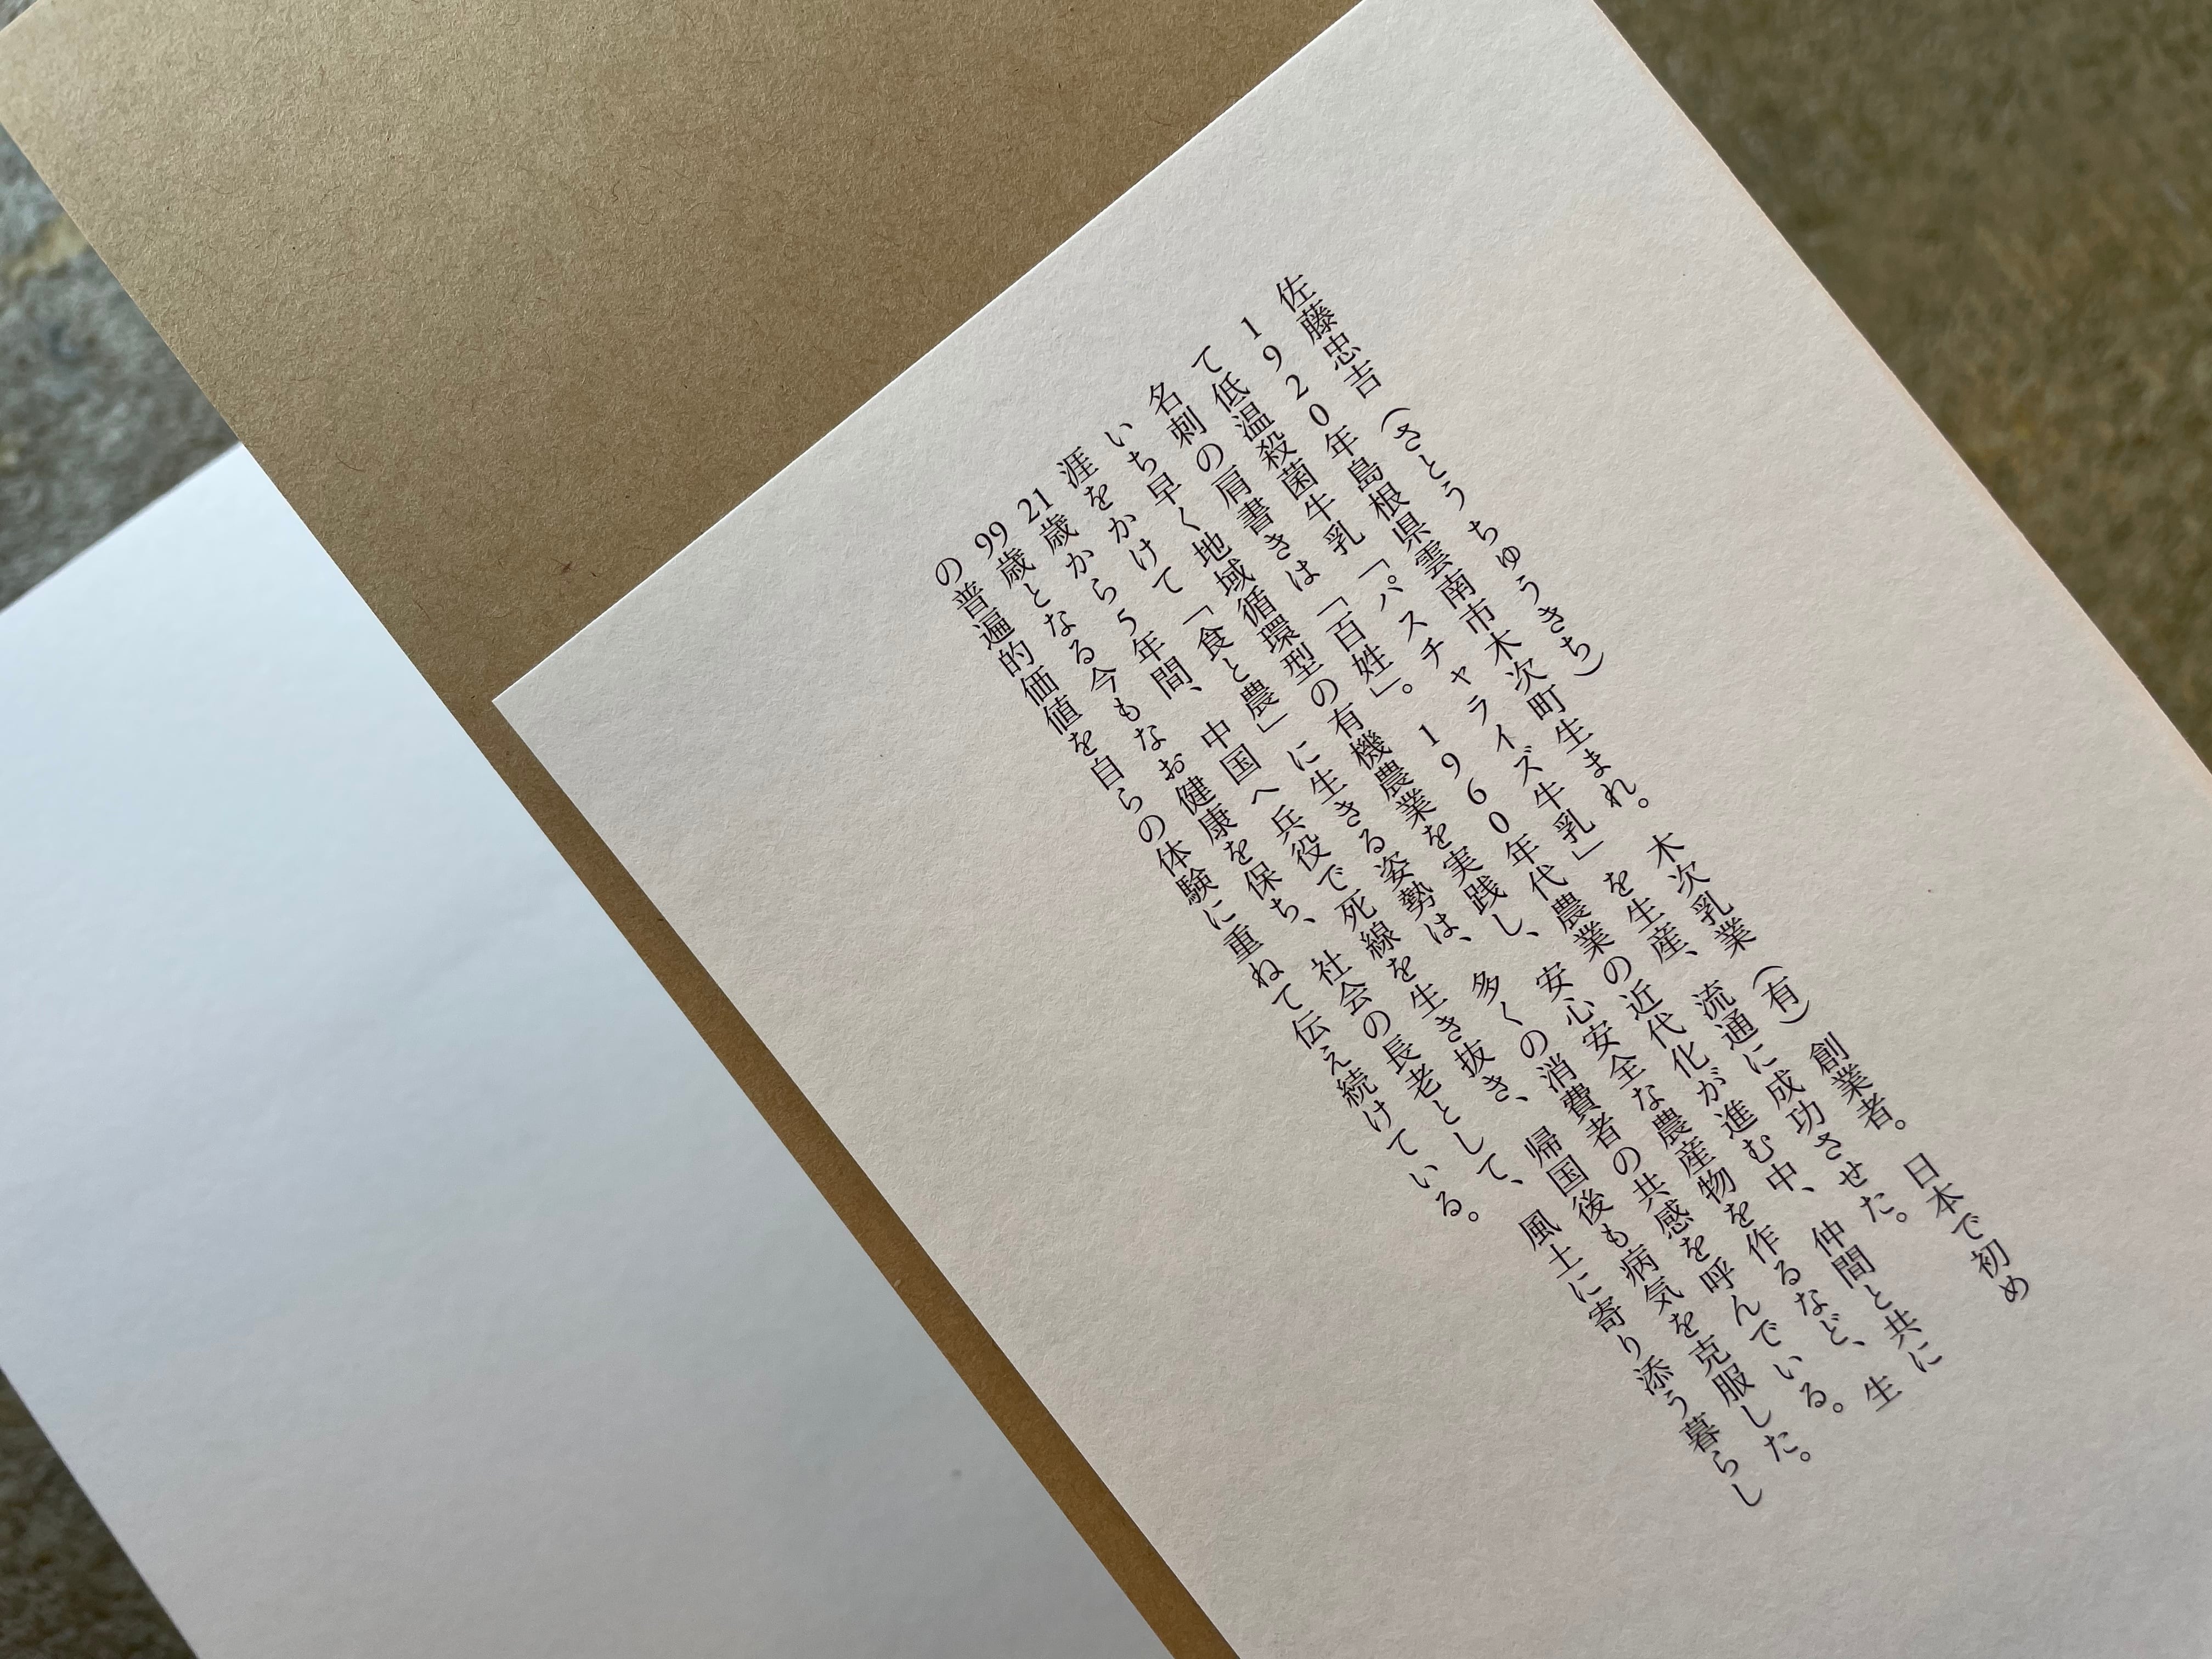 佐藤忠吉（さとう ちゅうきち）
1920年島根県雲南市木次町生まれ。木次乳業（有）創業者。日本で初め
て低温殺菌牛乳「パスチャライズ牛乳」を生産、流通に成功させた。
名刺の肩書きは「百姓」。1960年代農業の近代化が進む中、仲間と共に
いち早く地域循環型の有機農業を実践し、安心安全な農産物を作るなど、生
涯をかけて「食と農」に生きる姿勢は、多くの消費者の共感を呼んでいる。
21歳から5年間、中国へ兵役で死線を生き抜き、帰国後も病気を克服した。
99歳となる今もなお健康を保ち、社会の長老として、風土に寄り添う暮らし
の普遍的価値を自らの体験に重ねて伝え続けている。